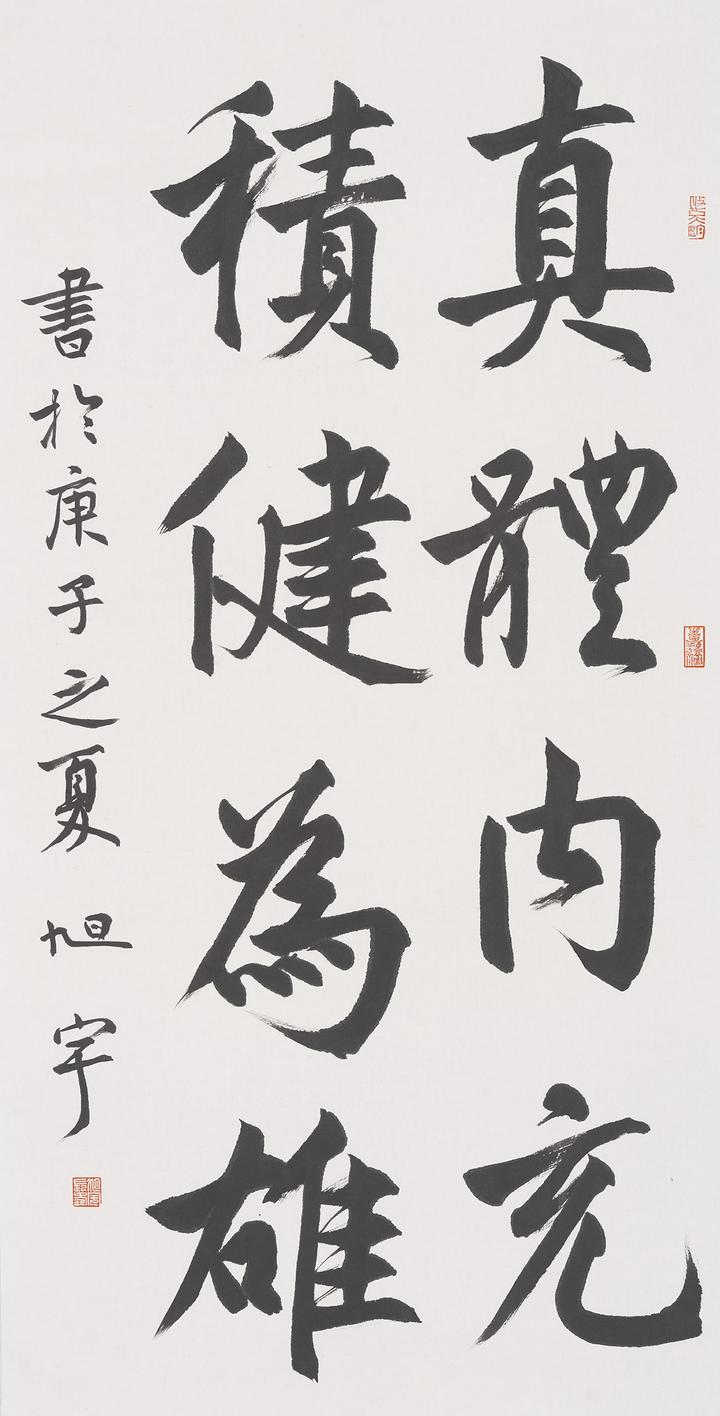 真體內充
積健為雄
書於庚子之夏 旭宇